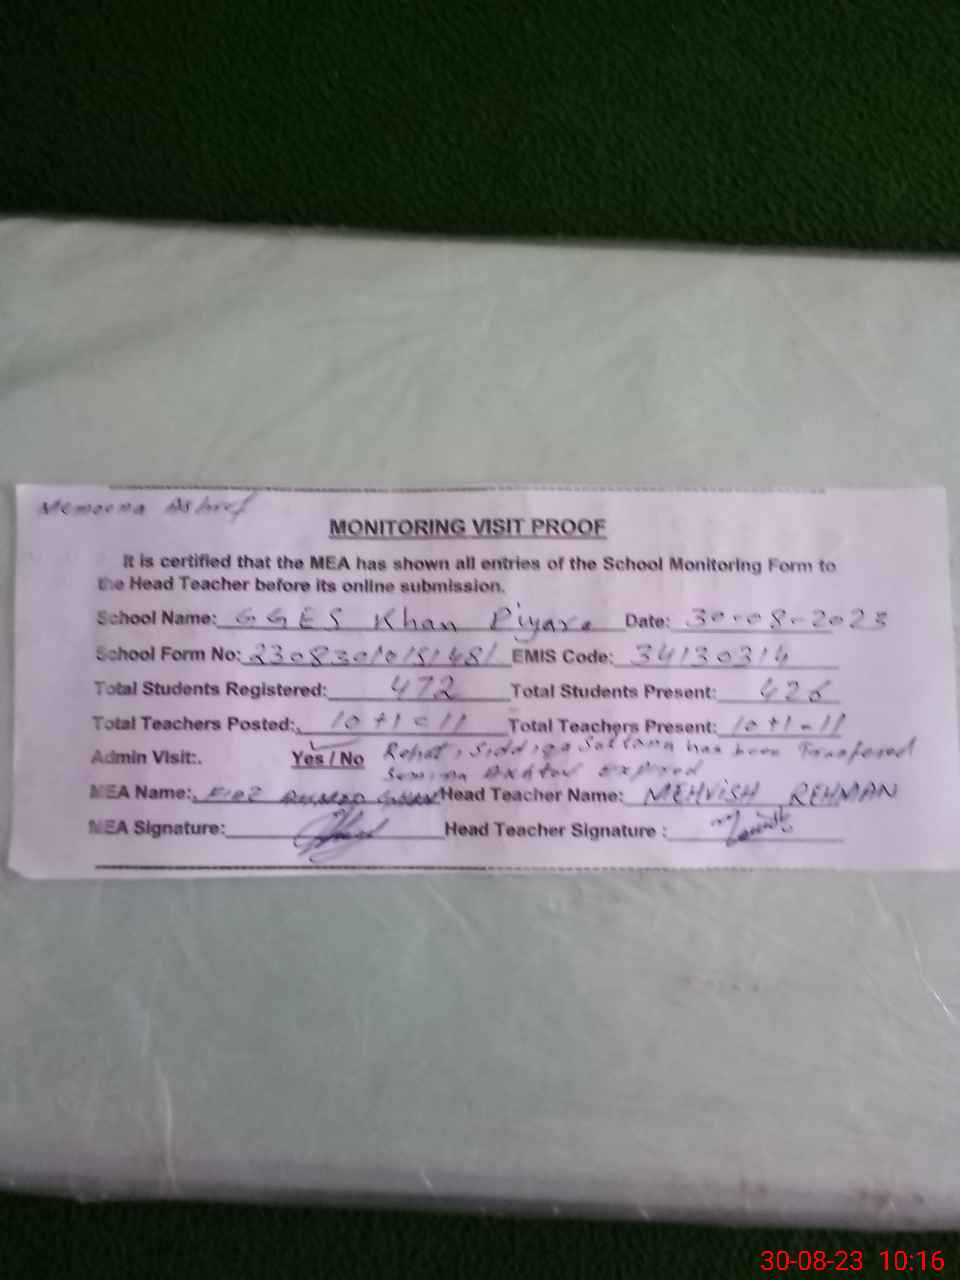 Memoona Ashref
MONITORING VISIT PROOF
It is certified that the MEA has shown all entries of the School Monitoring Form to
the Head Teacher before its online submission.
School Name: GGES Khan Piyara Date: 30-08-2023
School Form No: EMIS Code: 34130314
Total Students Registered: 472 Total Students Present: 426
Total Teachers Posted:. 10+1=11 Total Teachers Present: 10+1=11
Admin Visit:. Yes / No Rehat, Siddiqa Sultana has been Transfered
expired
MEA Name:. Head Teacher Name: MEHVISH REHMAN
MEA Signature: Head Teacher Signature :
30-08-23 10:16